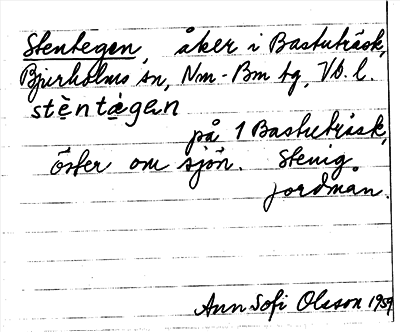 Stentegen, åker i Bastuträsk,
Bjurholms sn, Nm-Bm tg, Vb. l.
stèntàgen
på 1 Bastuträsk,
öster om sjön. Stenig
jordmån.
Ann Sofi Olsson 1959